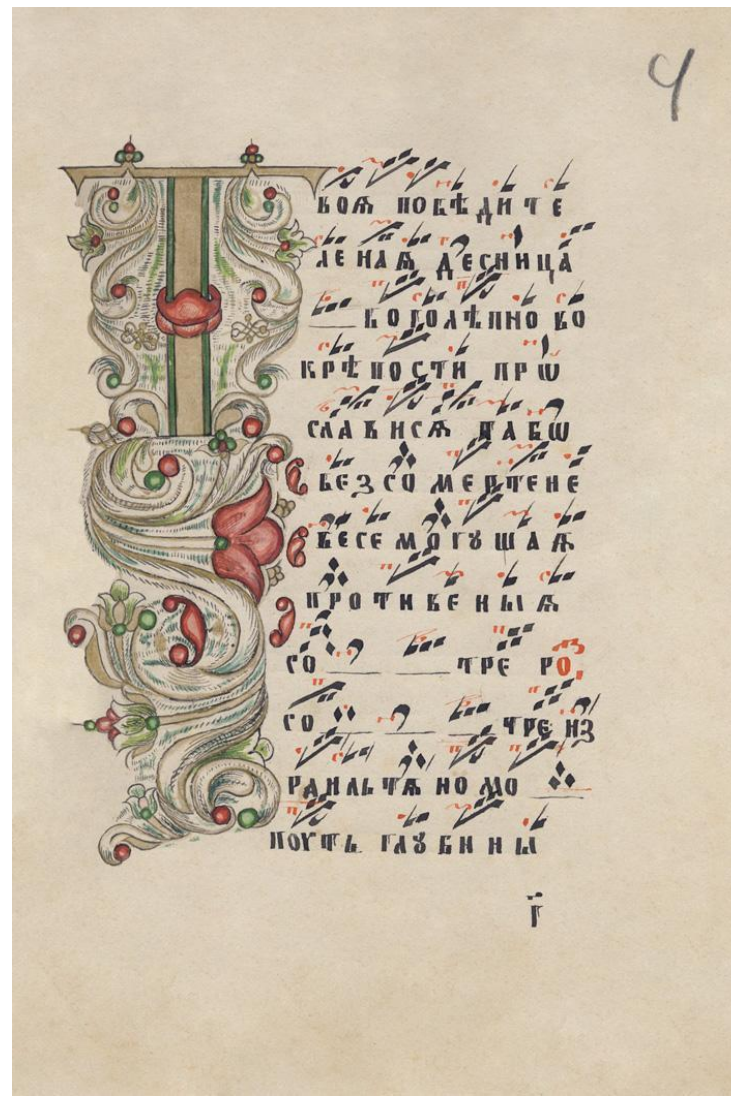 4
Т
воѧ побѣдите
леная десница
боголѣпно во
крѣпости прѡ
слависѧ та бѡ
безсо мертене
весе могꙋщаѧ
противеныѧ
со тре ро
со тре из
раильтѧномо
поуть глꙋбины
г҃